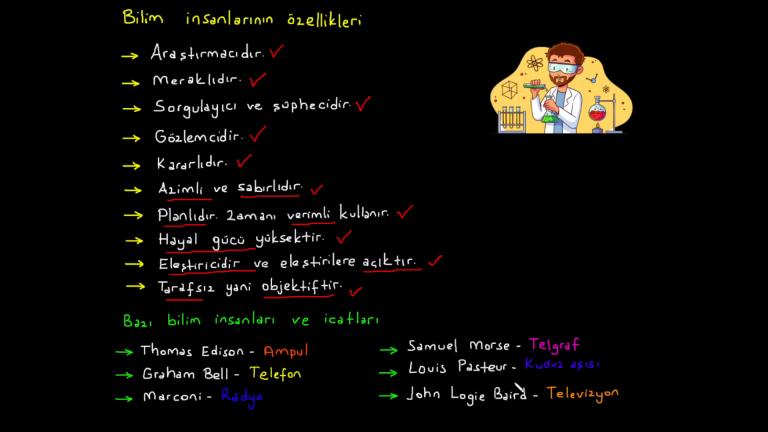 Bilim insanlarının özellikleri
→ Araştırmacıdır. ✓
→ Meraklıdır. ✓
→ Sorgulayıcı ve şüphecidir. ✓
→ Gözlemcidir. ✓
→ Kararlıdır. ✓
→ Azimli ve sabırlıdır. ✓
→ Planlıdır. Zamanı verimli kullanır. ✓
→ Hayal gücü yüksektir. ✓
→ Eleştiricidir ve eleştirilere açıktır. ✓
→ Tarafsız yani objektiftir. ✓
Bazı bilim insanları ve icatları
→ Thomas Edison - Ampul
→ Graham Bell - Telefon
→ Marconi - Radyo
→ Samuel Morse - Telgraf
→ Louis Pasteur - Kuduz aşısı
→ John Logie Baird - Televizyon